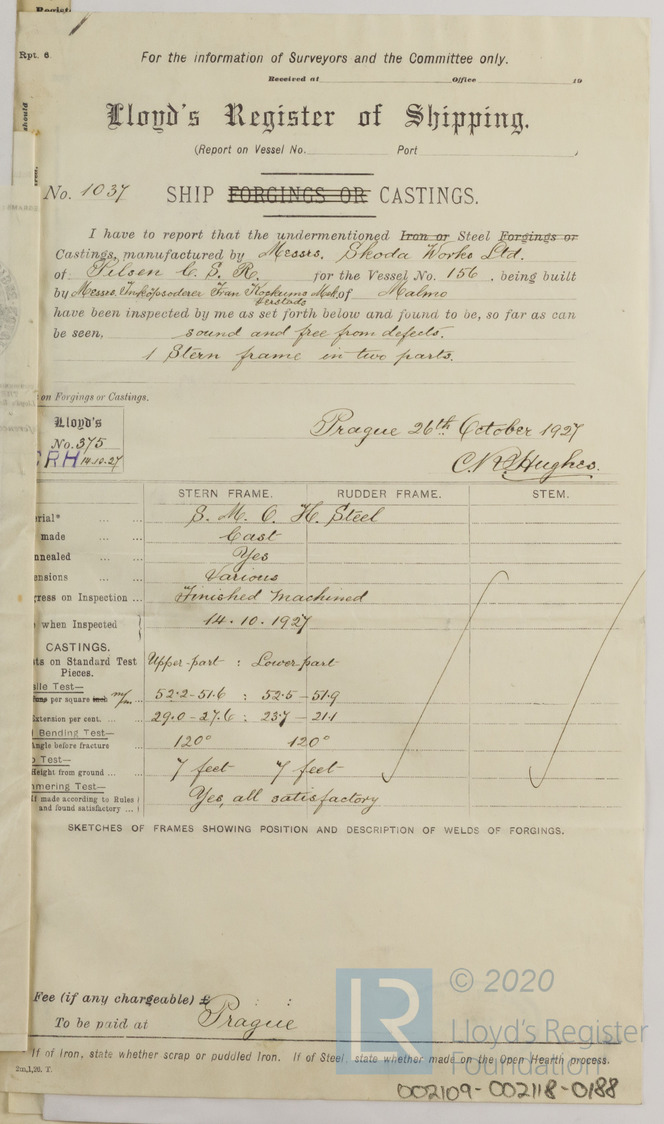 Regist
Rpt. 6.
For the information of Surveyors and the Committee only.
Received at Office 19
Lloyd's Register of Shipping.
(Report on Vessel No. Port
No. 1037 SHIP FORGINGS OR CASTINGS.
I have to report that the undermentioned Iron or Steel Forgings or
Castings, manufactured by Messrs. Skoda Works Ltd.
of Pilsen C. S. R. for the Vessel No. 156, being built
by Messrs. Fran Kockums Mek. of Malmo
Verstads
have been inspected by me as set forth below and found to be, so far as can
be seen, sound and free from defects.
1 Stern frame in two parts.
on Forgings or Castings.
Lloyd's
No. 375
CRH 14.10.27
Prague 26th October 1927
Hughes.
STERN FRAME. RUDDER FRAME. STEM.
erial* ... ... S. M. O. H. Steel
made ... ... Cast
nnealed ... ... Yes
ensions ... ... Various
gress on Inspection ... Finished Machined
when Inspected 14.10.1927
CASTINGS.
ts on Standard Test Upper part : Lower part
Pieces.
sile Test—
per square m/m ... 52.2-51.6 : 52.5-51.9
Extension per cent. ... ... 29.0-27.6 : 23.7-21.1
Bending Test—
Angle before fracture 120° 120°
Test—
Height from ground ... ... 7 feet 7 feet
mmering Test—
If made according to Rules Yes, all satisfactory
and found satisfactory ...
SKETCHES OF FRAMES SHOWING POSITION AND DESCRIPTION OF WELDS OF FORGINGS.
Fee (if any chargeable) £ : :
To be paid at Prague
If of Iron, state whether scrap or puddled Iron. If of Steel, state whether made on the Open Hearth process.
2m,1,20. T.
LR
© 2020
Lloyd's Register
Foundation
002109-002118-0188